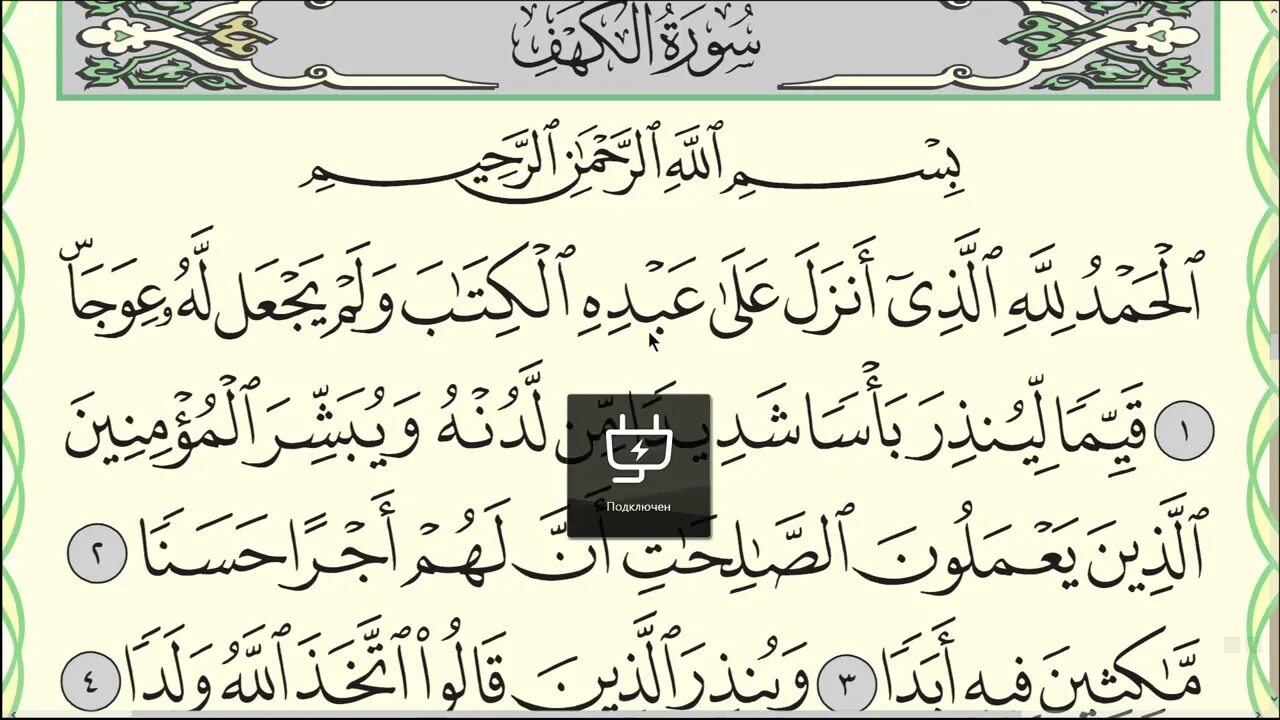 سُورَةُ الكَهْفِ
بِسْمِ ٱللَّهِ ٱلرَّحْمَٰنِ ٱلرَّحِيمِ
ٱلْحَمْدُ لِلَّهِ ٱلَّذِىٓ أَنزَلَ عَلَىٰ عَبْدِهِ ٱلْكِتَٰبَ وَلَمْ يَجْعَل لَّهُۥ عِوَجَاۜ
١ قَيِّمًا لِّيُنذِرَ بَأْسًا شَدِيدًا مِّن لَّدُنْهُ وَيُبَشِّرَ ٱلْمُؤْمِنِينَ
Подключен
ٱلَّذِينَ يَعْمَلُونَ ٱلصَّٰلِحَٰتِ أَنَّ لَهُمْ أَجْرًا حَسَنًا ٢
مَّٰكِثِينَ فِيهِ أَبَدًا ٣ وَيُنذِرَ ٱلَّذِينَ قَالُوا۟ ٱتَّخَذَ ٱللَّهُ وَلَدًا ٤